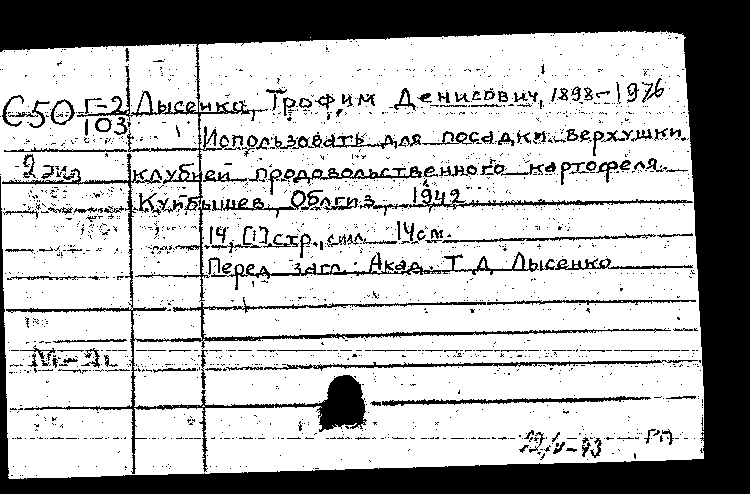 С50 Г-2 Лысенко, Трофим Денисович, 1898-1976
103 Использовать для посадки верхушки
2 экз клубней продовольственного картофеля.
Куйбышев, Облгиз, 1942
14, [1] стр., 14см.
Перед загл.: Акад. Т Д Лысенко
РП